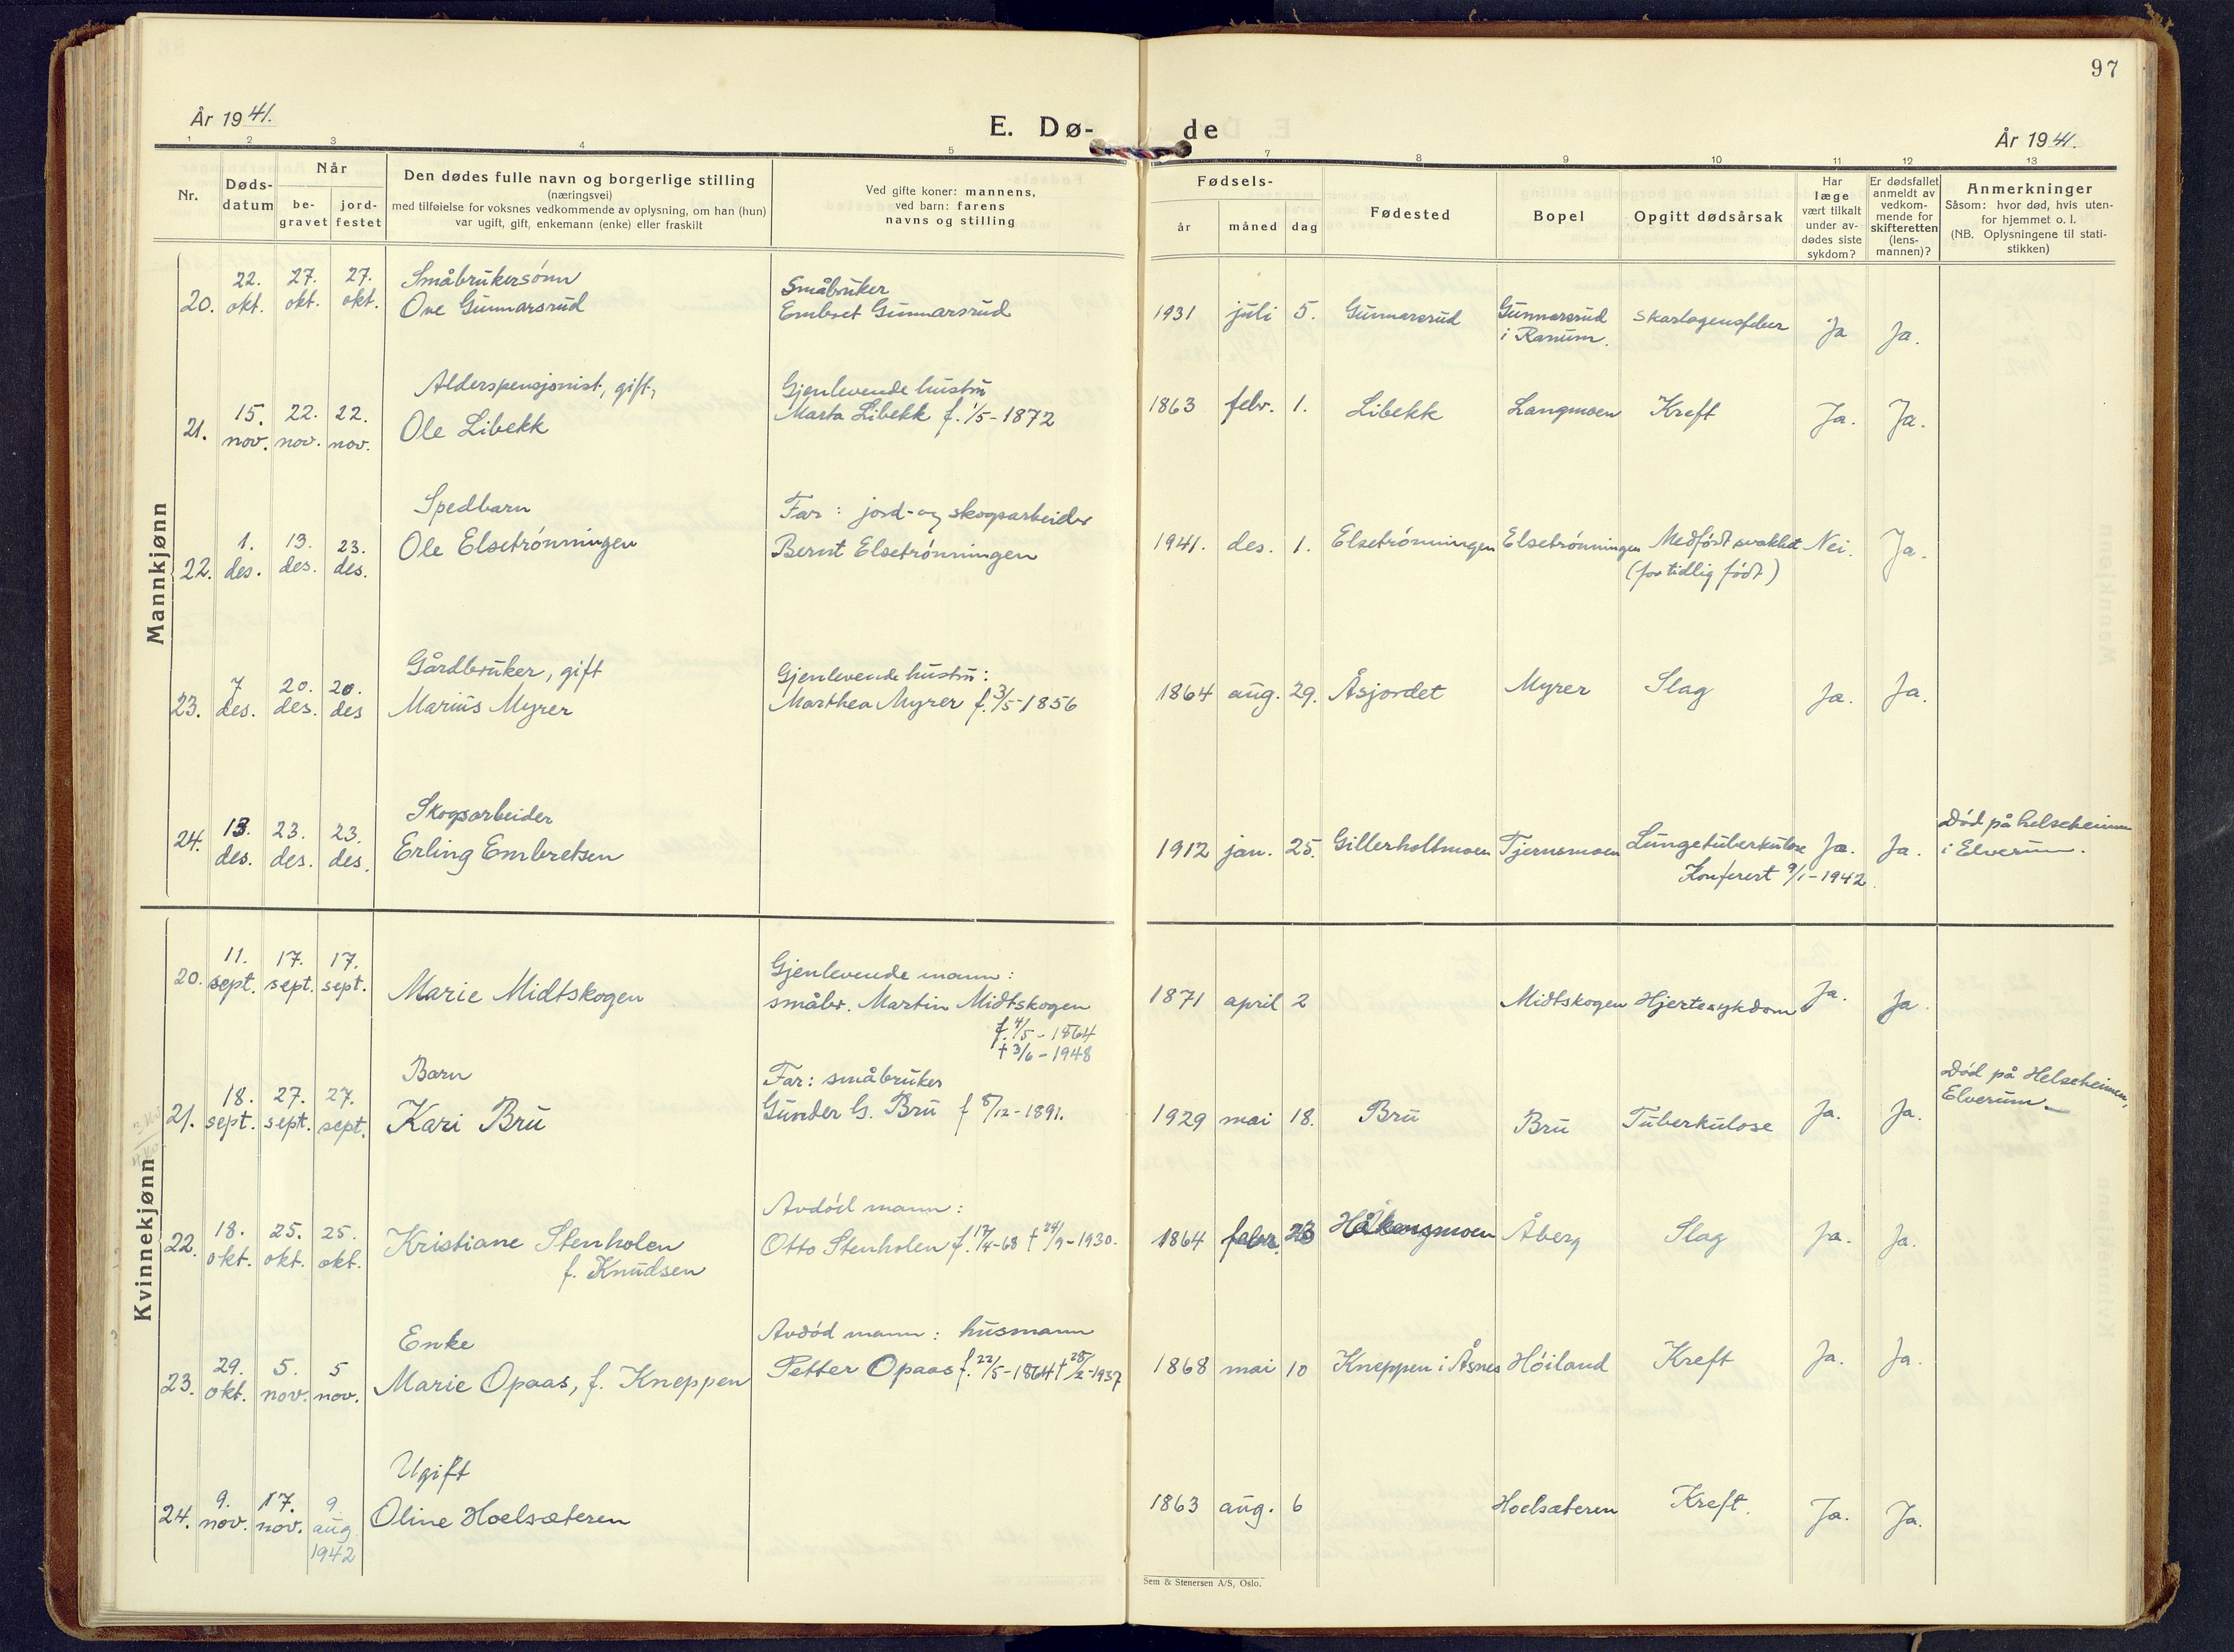 97
År 1941.
E. Dø-
de
År 1941.
1 2 3 4 5 7 8 9 10 11 12 13
Nr.
Døds-
datum
Når
be-
gravet
jord-
festet
Den dødes fulle navn og borgerlige stilling
(næringsvei)
med tilføielse for voksnes vedkommende av oplysning, om han (hun)
var ugift, gift, enkemann (enke) eller fraskilt
Ved gifte koner: mannens,
ved barn: farens
navns og stilling
Fødsels-
år
måned
dag
Fødested
Bopel
Opgitt dødsårsak
Har
læge
vært tilkalt
under av-
dødes siste
sykdom?
Er dødsfallet
anmeldt av
vedkom-
mende for
skifteretten
(lens-
mannen)?
Anmerkninger
Såsom: hvor død, hvis uten-
for hjemmet o. l.
(NB. Oplysningene til stati-
stikken)
Mannkjønn
22. 27. 27. Småbrukersønn Småbruker
20. okt. okt. okt. Ove Gunnarsrud Embret Gunnarsrud 1931 juli 5. Gunnarsrud Gunnarsrud Skarlagensfeber Ja Ja.
i Ranum.
Alderspensjonist, gift, Gjenlevende hustru
15. 22. 22. Marta Libekk f. 1/5-1872 1863 febr. 1. Libekk Langmoen Kreft Ja. Ja.
21. nov. nov. nov. Ole Libekk
Spedbarn Far: jord- og skogsarbeider
1. 13. 23. Ole Elsetrønningen Bernt Elsetrønningen 1941. des. 1. Elsetrønningen Elsetrønningen Medfødt svakhet Nei. Ja.
22. des. des. des. (for tidlig født)
Gårdbruker, gift Gjenlevende hustru:
7 20. 20. Marthea Myrer f. 3/5-1856 1864 aug. 29. Åsjordet Myrer Slag Ja. Ja.
23. des. des. des Marius Myrer
Skogsarbeider Død på helseheimen
24. 13. 23. 23. i Elverum.
des. des. des. Erling Embretsen 1912 jan. 25. Gillerholtmoen Tjernsmoen Lungetuberkulose Ja. Ja.
Konferert 9/1-1942.
Kvinnekjønn
11. 17. 17. Gjenlevende mann:
20. sept. sept. sept. Marie Midtskogen småbr. Martin Midtskogen 1871 april 2 Midtskogen Hjertesykdom Ja. Ja.
f. 4/5-1864
† 3/6-1948
Barn Far: småbruker Død på Helseheimen,
18. 27. 27. Elverum.
21. sept. sept. sept. Kari Bru Gunder G. Bru f 8/12-1891. 1929 mai 18. Bru Bru Tuberkulose Ja. Ja.
Avdød mann:
18. 25. 25. Otto Stenholen f. 17/4-68 † 24/9-1930. 1864 febr. 23 Håkengmoen Åberg Slag Ja. Ja.
22. okt. okt. okt. Kristiane Stenholen
f. Knudsen
Enke Avdød mann: husmann
29. 5. 5 Petter Opaas f. 22/5-1864 † 28/2-1937 1868 mai 10 Kneppen i Åsnes Høiland Kreft Ja. Ja.
23. okt. nov. nov. Marie Opaas, f. Kneppen
Ugift
9. 17. 9. 1863 aug. 6 Hoelsæteren Kreft. Ja. Ja.
24. nov. nov. aug Oline Hoelsæteren
1942
Sem & Stenersen A/S, Oslo.